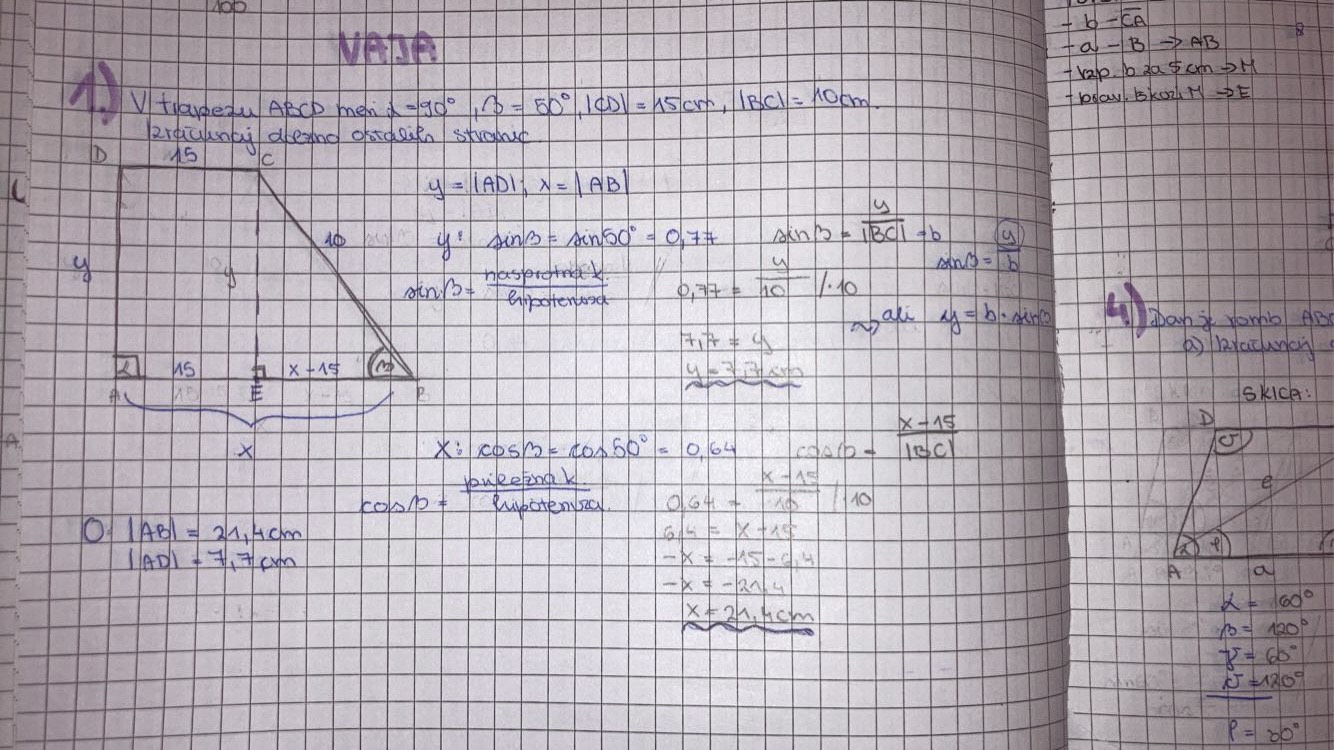 100
VAJA
1.) V trapezu ABCD meri α=90°, β = 50°, |CD| = 15cm, |BC| = 10cm.
Izračunaj dolžino ostalih stranic
D 15 C
10
y
y
α 15 x-15 β
A E B
x
y = |AD|; x = |AB|
y: sinβ = sin50° = 0,77
sinβ = nasprotna k. / hipotenuza
sinβ = y / |BC| → b
sinβ = y / b
0,77 = y / 10 /·10
ali y = b·sinβ
7,7 = y
y = 7,7cm
x: cosβ = cos50° = 0,64
cosβ = priležna k. / hipotenuza
cosβ = x-15 / |BC|
0,64 = x-15 / 10 /·10
6,4 = x-15
-x = -15-6,4
-x = -21,4
x = 21,4cm
O: |AB| = 21,4cm
|AD| = 7,7cm
- b - CA
- a - B → AB
- vzp. b za 5cm → M
- prav. skozi M → E
8
4.) Dan je romb ABC
a) Izračunaj
SKICA:
D
e
A a
β = 120°
γ = 60°
δ = 120°